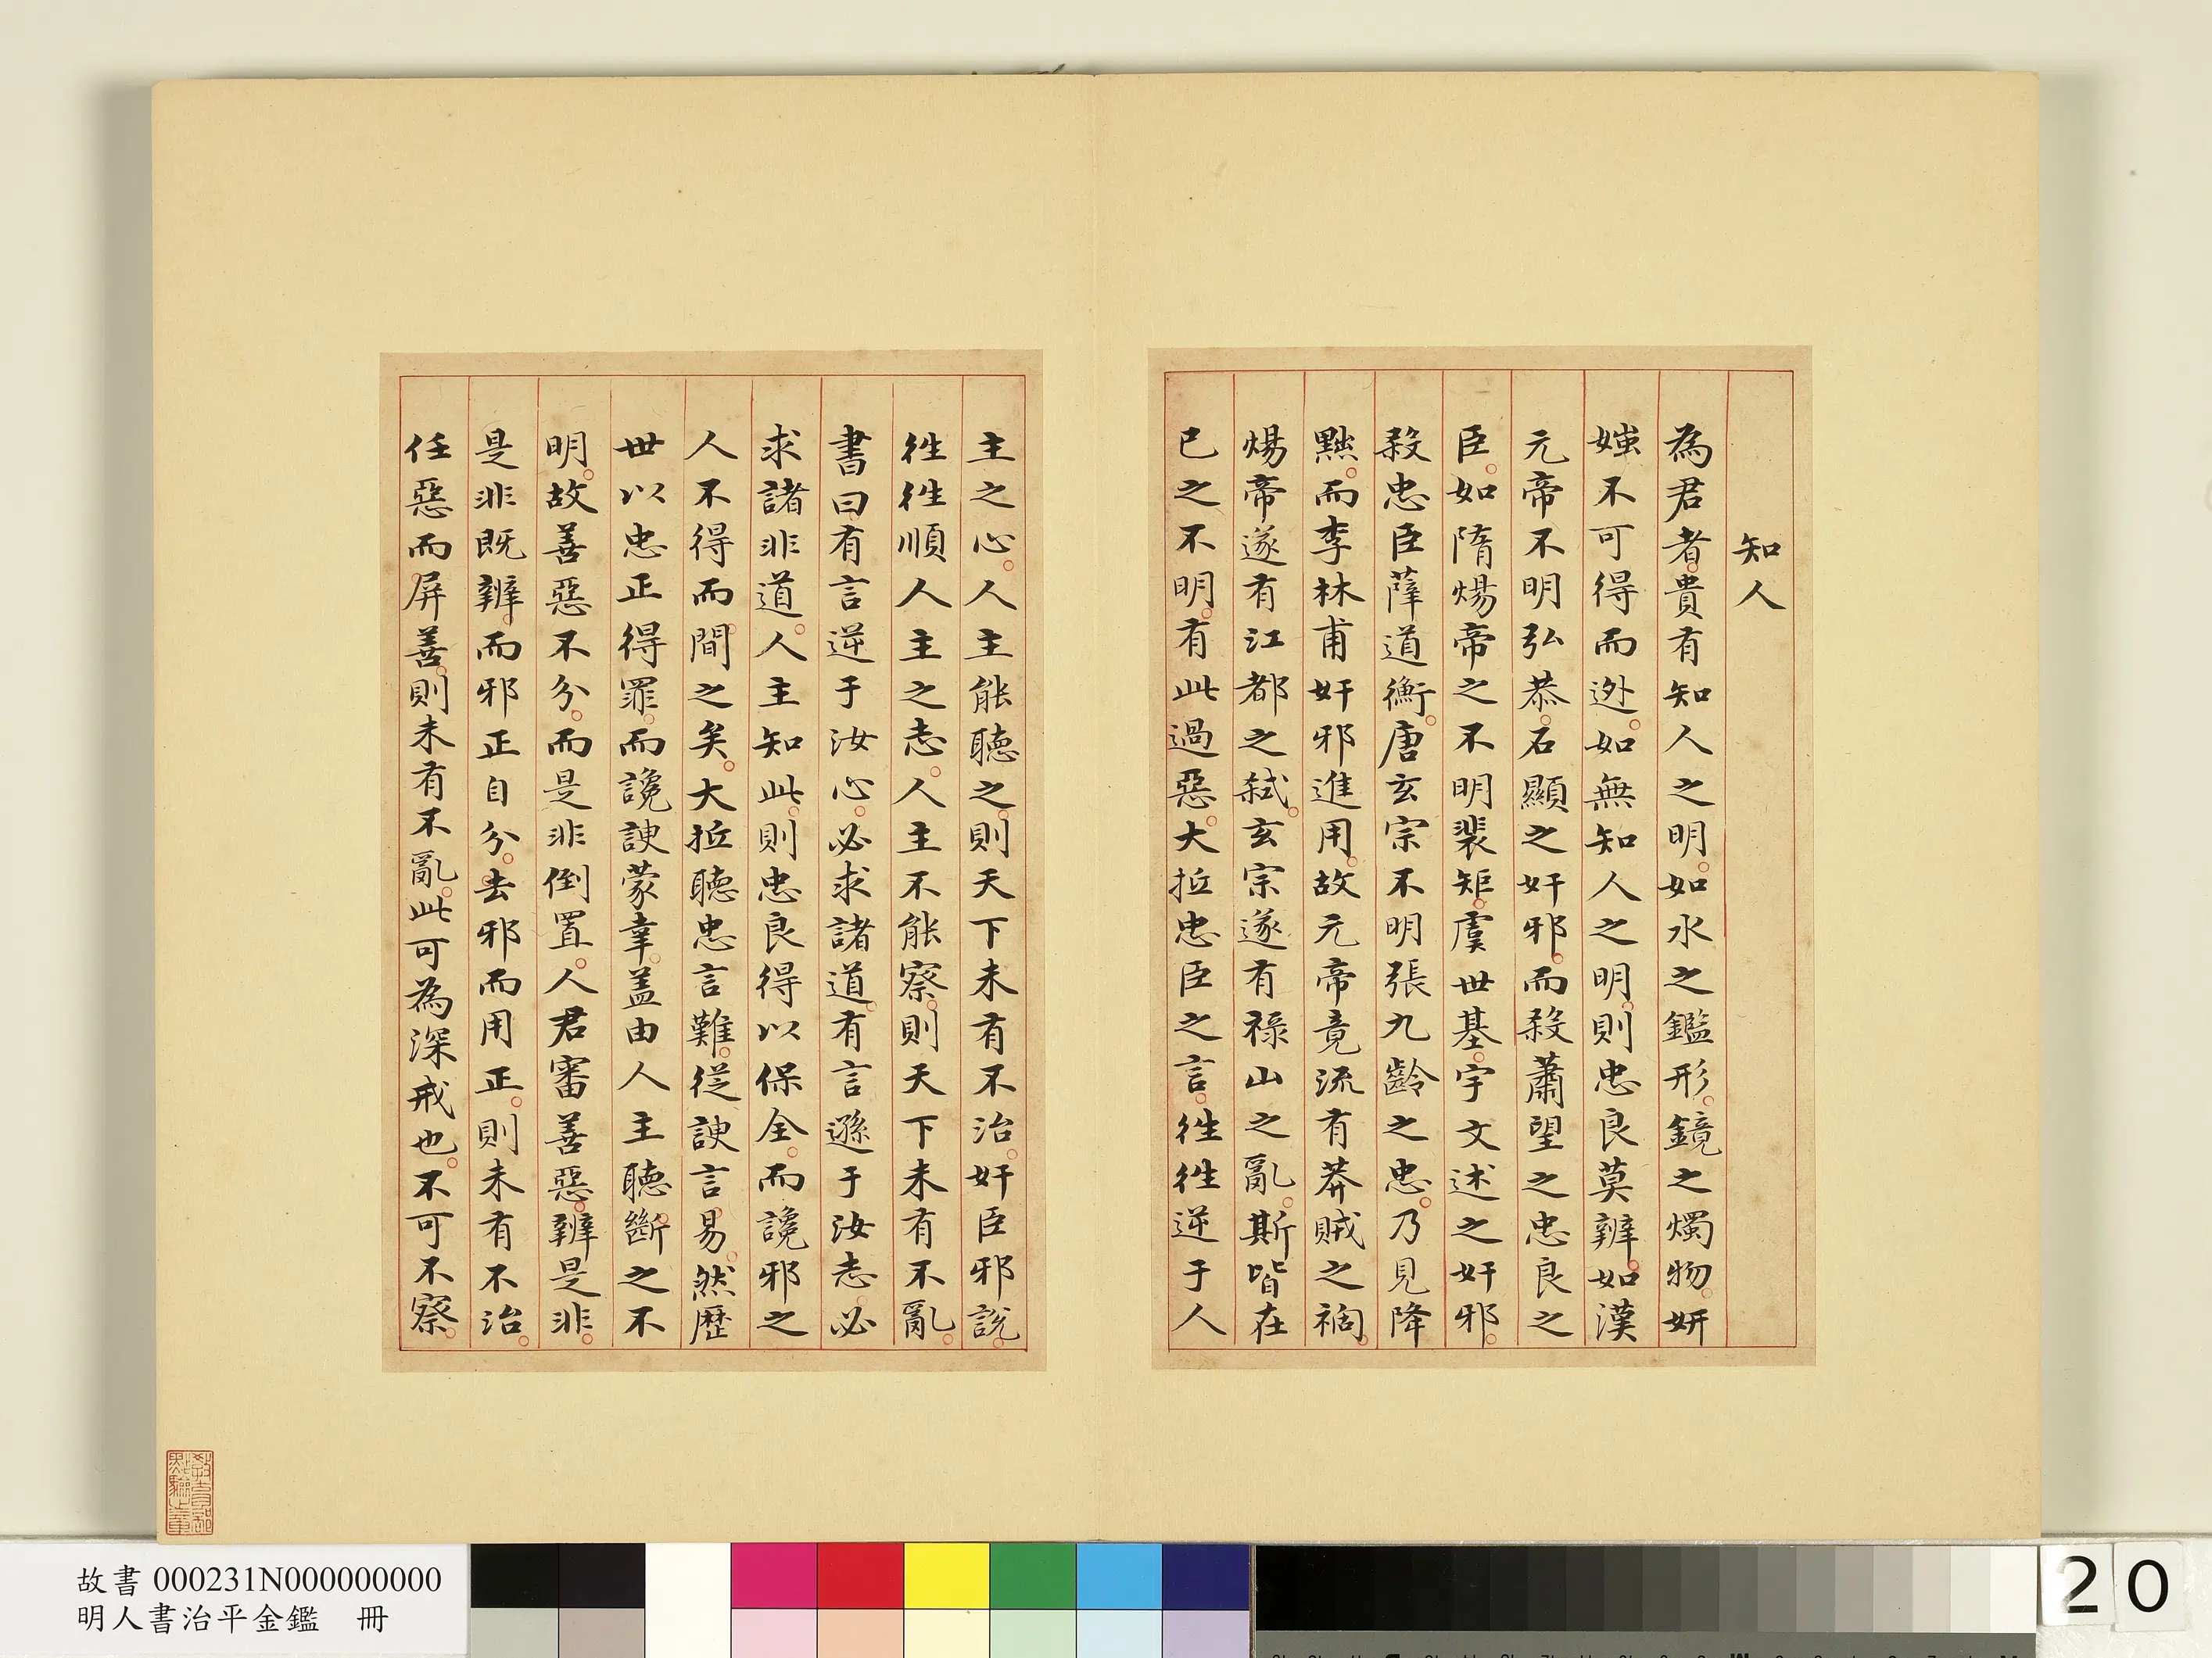 知人
為君者貴有知人之明如水之鑑形鏡之燭物妍
媸不可得而迯如無知人之明則忠良莫辨如漢
元帝不明弘恭石顯之奸邪而殺蕭望之忠良之
臣如隋煬帝之不明裴矩虞世基宇文述之奸邪
殺忠臣薛道衡唐玄宗不明張九齡之忠乃見降
黜而李林甫奸邪進用故元帝竟流有莽賊之禍
煬帝遂有江都之弒玄宗遂有祿山之亂斯皆在
已之不明有此過惡大抵忠臣之言徃徃逆于人
主之心人主能聽之則天下未有不治奸臣邪說
徃徃順人主之志人主不能察則天下未有不亂
書曰有言逆于汝心必求諸道有言遜于汝志必
求諸非道人主知此則忠良得以保全而讒邪之
人不得而間之矣大抵聽忠言難從諛言易然歷
世以忠正得罪而讒諛蒙幸盖由人主聽斷之不
明故善惡不分而是非倒置人君審善惡辨是非
是非既辨而邪正自分去邪而用正則未有不治
任惡而屏善則未有不亂此可為深戒也不可不察
教育部點驗之章
故書 000231N000000000
明人書治平金鑑 冊
20